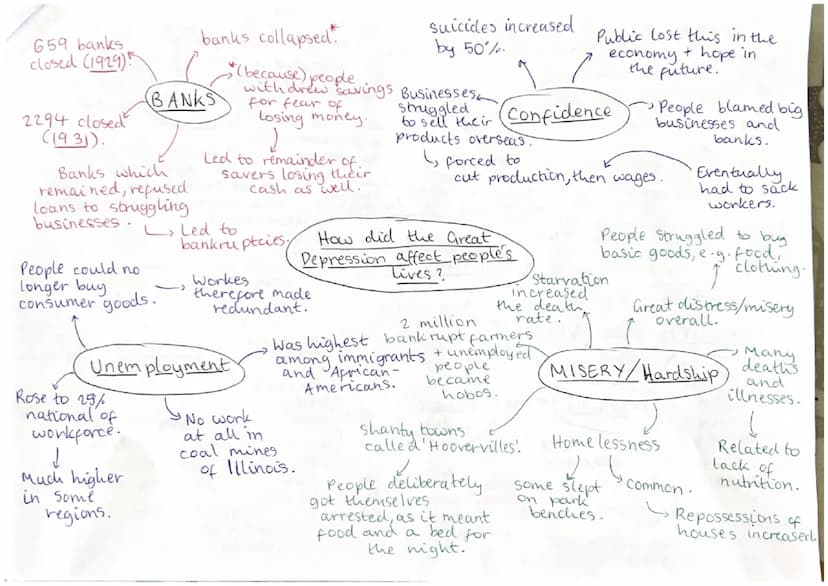 659 banks
closed (1929).
banks collapsed.*
BANKS
*(because) people
withdrew savings
for fear of
losing money.
Led to remainder of
savers losing their
cash as well.
2294 closed
(1931).
Banks which
remained, refused
loans to struggling
businesses.
Led to
bankruptcies.
suicides increased
by 50%.
Public lost this in the
economy + hope in
the future.
Confidence
Businesses
struggled
to sell their
products overseas.
forced to
cut production, then wages.
People blamed big
businesses and
banks.
Eventually
had to sack
workers.
How did the Great
Depression affect people's
lives?
People could no
longer buy
consumer goods.
Workes
therefore made
redundant.
Unemployment
Was highest
among immigrants
and African-
Americans.
Rose to 25%
national of
workforce.
Much higher
in some
regions.
No work
at all in
coal mines
of Illinois.
People struggled to buy
basic goods, e.g. food,
clothing.
Great distress/misery
overall.
Starvation
increased
the death
rate.
MISERY/Hardship
2 million
bankrupt farmers
+ unemployed
people
became
hobos.
Many
deaths
and
illnesses.
Related to
lack of
nutrition.
Shanty towns
called 'Hoovervilles'.
People deliberately
got themselves
arrested, as it meant
food and a bed for
the night.
Homelessness
some slept
on park
benches.
common.
Repossessions of
houses increased.